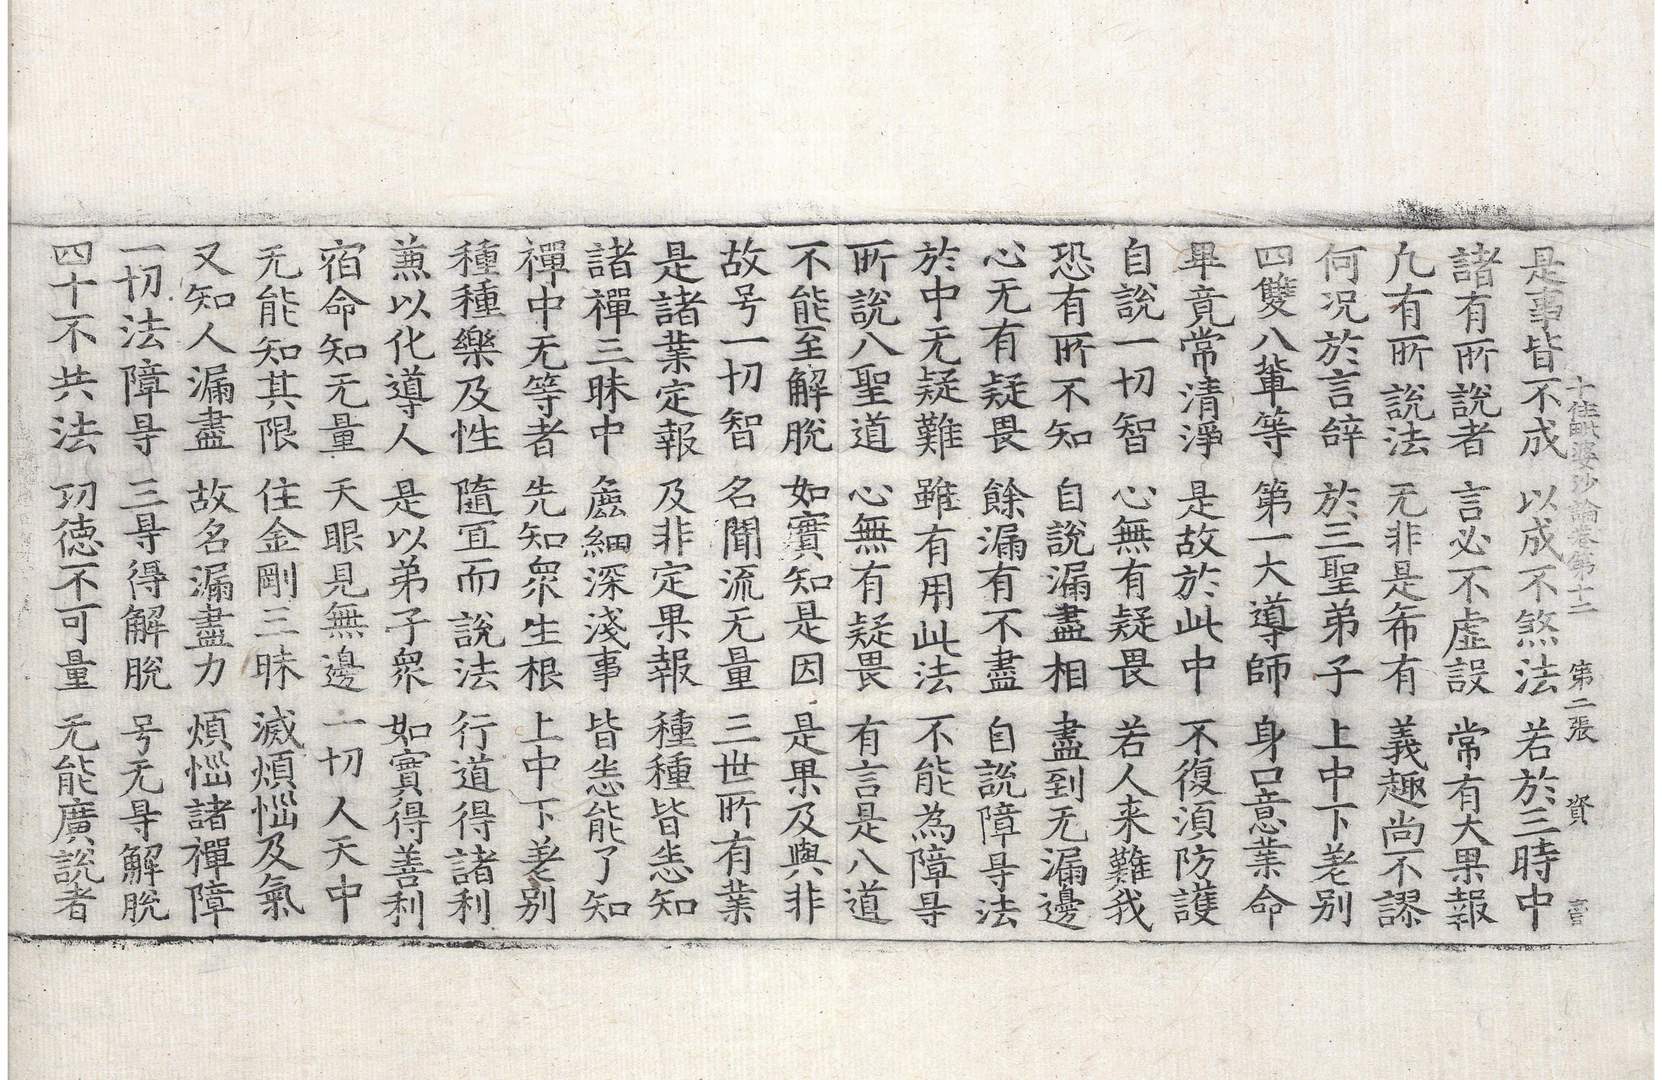 十住毗婆沙論卷第十二 第二張 資
是事皆不成 以成不煞法 若於三時中
諸有所說者 言必不虛設 常有大果報
凡有所說法 无非是希有 義趣尚不謬
何况於言辝 於三聖弟子 上中下差别
四雙八輩等 第一大導師 身口意業命
畢竟常清淨 是故於此中 不復湏防護
自說一切智 心無有疑畏 若人来難我
恐有所不知 自說漏盡相 盡到无漏邊
心无有疑畏 餘漏有不盡 自說障㝵法
於中无疑難 雖有用此法 不能為障㝵
所說八聖道 心無有疑畏 有言是八道
不能至解脫 如實知是因 是果及與非
故号一切智 名聞流无量 三世所有業
是諸業定報 及非定果報 種種皆悉知
諸禪三昧中 麁細深淺事 皆悉能了知
禪中无等者 先知衆生根 上中下差别
種種樂及性 隨宜而說法 行道得諸利
兼以化導人 是以弟子衆 如實得善利
宿命知无量 天眼見無邊 一切人天中
无能知其限 住金剛三昧 滅煩惱及氣
又知人漏盡 故名漏盡力 煩惱諸禪障
一切法障㝵 三㝵得解脫 号无㝵解脫
四十不共法 功德不可量 无能廣說者